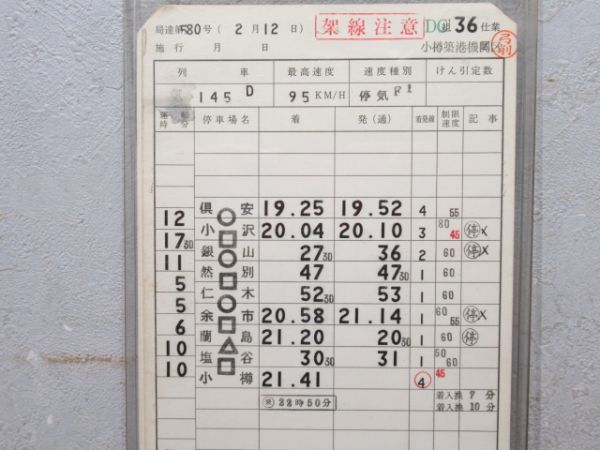 局達第580号 (2月12日) 架線注意 DC組 36 仕業
施行 月 日 小樽築港機関区
列車 最高速度 速度種別 けん引定数
145D 95 KM/H 停気F1
運転時分 停車場名 着 発(通) 着発線 制限速度 記事
倶安 19.25 19.52 4 55
12 小沢 20.04 20.10 3 80 45 停 ×
17 30 銀山 27 30 36 2 60 停 ×
11 然別 47 47 30 1 60
5 仁木 52 30 53 1 60
5 余市 20.58 21.14 1 60 55 停 ×
6 蘭島 21.20 20 30 1 60 停
10 塩谷 30 30 31 1 50 60
10 小樽 21.41 4 45
22時50分 着入換 7分
着入換 10分